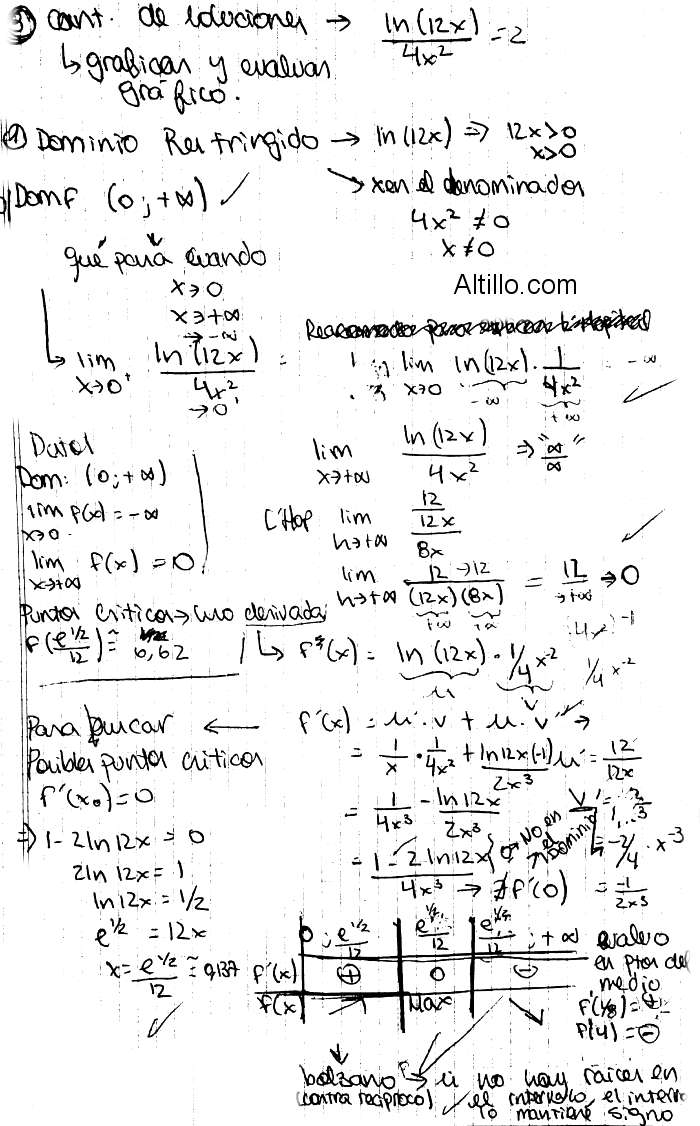 3) cant. de soluciones → ln(12x)/4x² = 2
↳ graficar y evaluar
gráfico.
1) Dominio Restringido → ln(12x) ⇒ 12x>0
x>0
→ x en el denominador
Domf (0; +∞) ✓
4x² ≠ 0
x ≠ 0
qué pasa cuando
x→0
x→+∞
Altillo.com
lim x→0⁺ ln(12x)/4x² =
→0⁺
lim x→0 ln(12x) · 1/4x² = -∞ ✓
-∞ +∞
Datos
Dom: (0; +∞)
lim x→0 f(x) = -∞
lim x→+∞ f(x) = 0
lim x→+∞ ln(12x)/4x² ⇒ "∞/∞"
L'Hop lim n→+∞ (12/12x)/8x
lim n→+∞ 12→12/(12x)(8x) = 12/→+∞ → 0 ✓
+∞ +∞
Puntos criticos → uso derivada
f(e^1/2/12) ≅ 6,62
↳ f(x) = ln(12x) · 1/4 x⁻² 1/4 x⁻²
u v
Para buscar ← f'(x) = u'·v + u·v' →
Posibles puntos criticos
f'(x₀) = 0
= 1/x · 1/4x² + ln12x(-1)/2x³ u' = 12/12x
= 1/4x³ - ln12x/2x³
= 1 - 2ln12x/4x³ → ∄f'(0)
No en el Dominio
= -2/4 · x⁻³
= -1/2x³
⇒ 1 - 2ln12x = 0
2ln12x = 1
ln12x = 1/2
e^1/2 = 12x
x = e^1/2/12 ≅ 0,137
✓
0; e^1/2/12 e^1/2/12 e^1/2/12; +∞
f'(x) ⊕ 0 ⊖
f(x) ↗ Max ↘
evaluo
en ptos del
medio
f'(1/8) = ⊕
f'(4) = ⊖
bolzano → si no hay raices en
(contra reciproco) el intervalo, el interv
lo mantiene signo